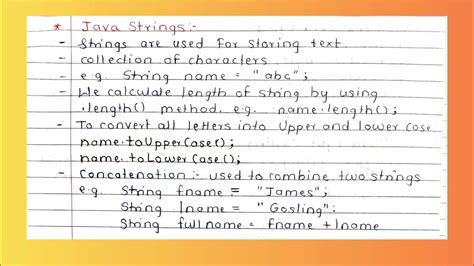 * Java Strings:-
- Strings are used for storing text
- collection of characters
- e.g. String name = "abc";
- We calculate length of string by using
.length() method. e.g. name.length();
- To convert all letters into Upper and lower case
name.toUpperCase();
name.toLowerCase();
- Concatenation :- used to combine two strings
e.g. String fname = "James";
String lname = "Gosling":
String fullname = fname + lname